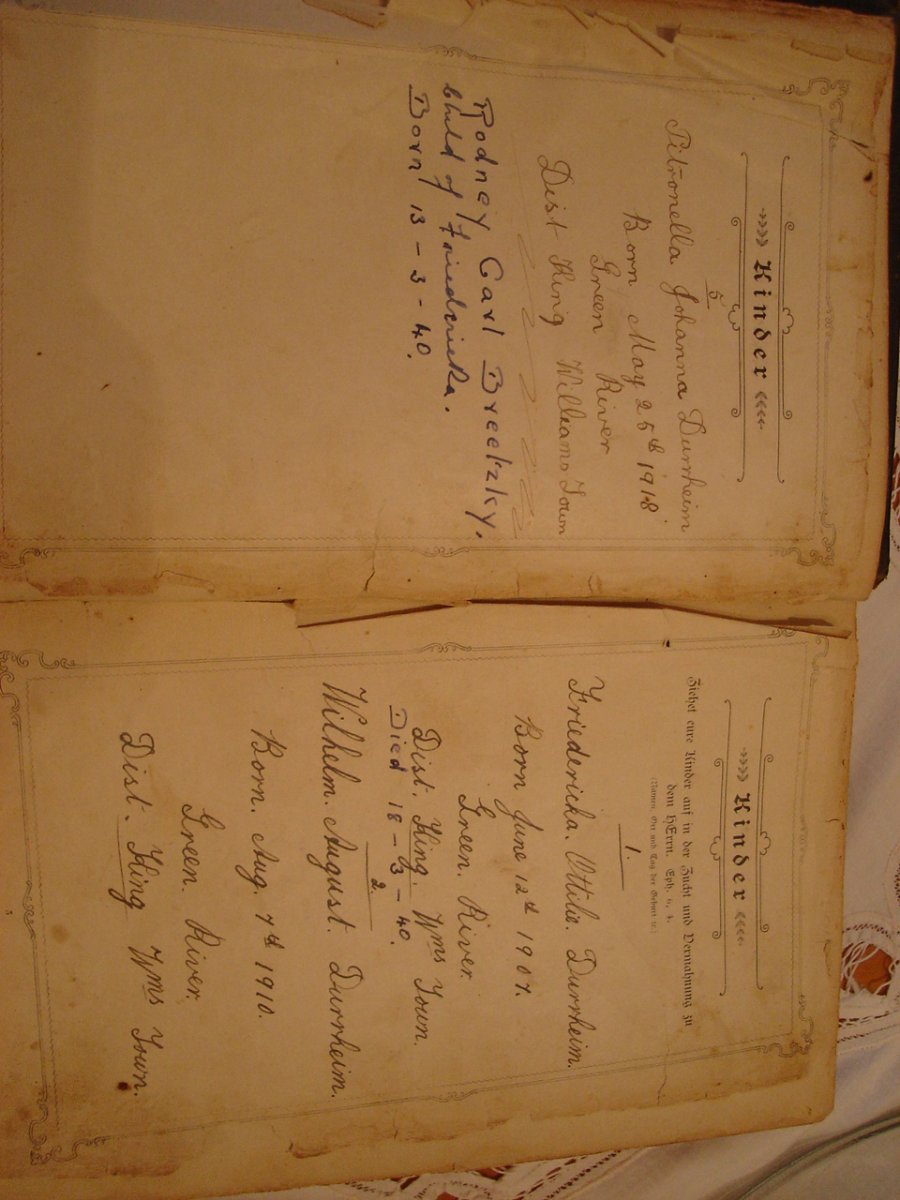 Kinder
5
Petronella Johanna Durrheim
Born May 25th 1918
Green River
Dist King Williams Town
Rodney Carl Breetzky.
child of Friedericka.
Born 13-3-40.
Kinder
Ziehet eure Kinder auf in der Zucht und Vermahnung zu
dem HErrn. Eph. 6, 4.
(Namen, Ort und Tag der Geburt ꝛc.)
1.
Friedericka. Ottilie. Durrheim.
Born June 12th 1907.
Green. River.
Dist. King. Wms Town.
Died 18-3-40.
2.
Wilhelm. August. Durrheim.
Born. Aug. 7th 1910.
Green. River.
Dist. King Wms Town.